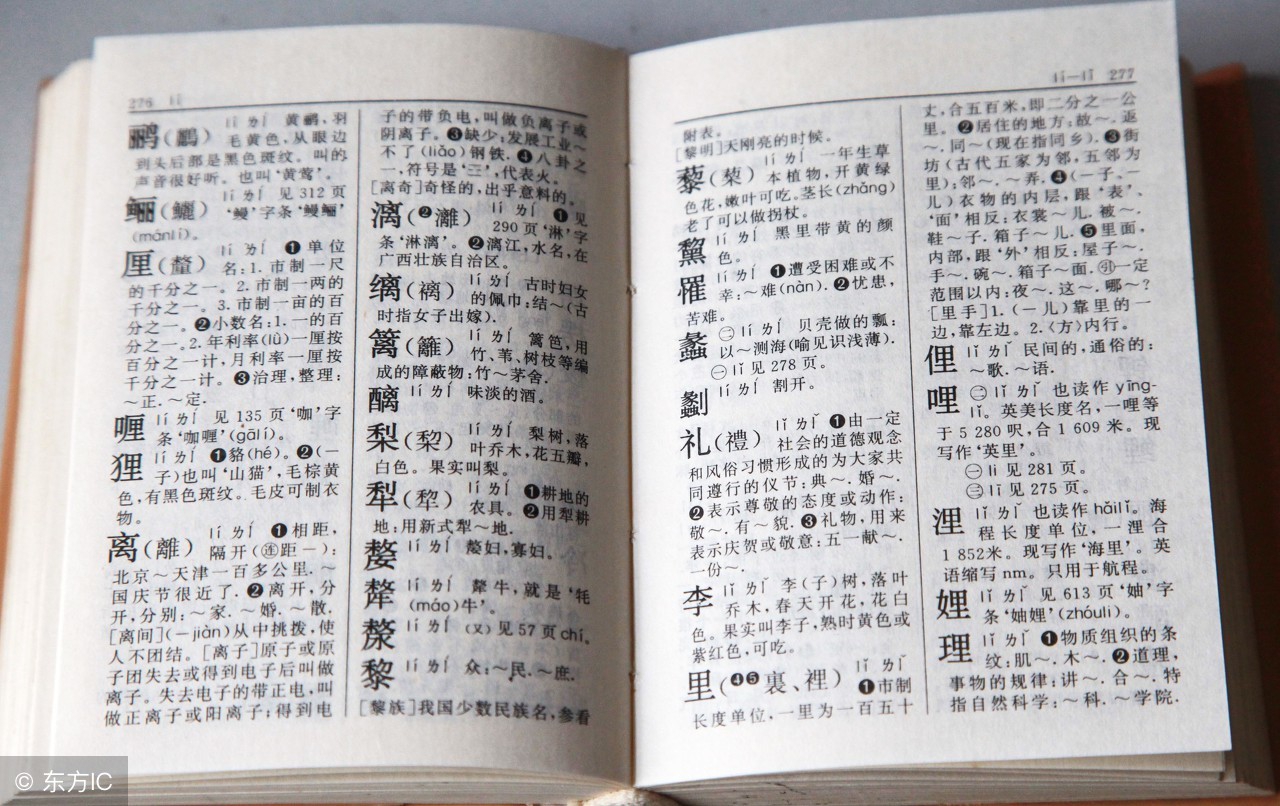 276 lí
鹂(鸝) lí ㄌㄧˊ 黄鹂,羽
毛黄色,从眼边
到头后部是黑色斑纹。叫的
声音很好听。也叫‘黄莺’。
鲡(鱺) lí ㄌㄧˊ 见312页
‘鳗’字条‘鳗鲡’
(mánlí)。
厘(釐) lí ㄌㄧˊ ❶单位
名:1.市制一尺
的千分之一。2.市制一两的
千分之一。3.市制一亩的百
分之一。❷小数名:1.一的百
分之一。2.年利率(lǜ)一厘按
百分之一计,月利率一厘按
千分之一计。❸治理,整理:
~正.~定.
喱 lí ㄌㄧˊ 见135页‘咖’字
条‘咖喱’(gālí)。
狸 lí ㄌㄧˊ ❶貉(hé)。❷(—
子)也叫‘山猫’,毛棕黄
色,有黑色斑纹。毛皮可制衣
物。
离(離) lí ㄌㄧˊ ❶相距,
隔开(㊣距—):
北京~天津一百多公里.~
国庆节很近了.❷离开,分
开,分别:~家.~婚.~散.
[离间](—jiàn)从中挑拨,使
人不团结。[离子]原子或原
子团失去或得到电子后叫做
离子。失去电子的带正电,叫
做正离子或阳离子;得到电
子的带负电,叫做负离子或
阴离子。❸缺少:发展工业~
不了(liǎo)钢铁.❹八卦之
一,符号是‘☲’,代表火。
[离奇]奇怪的,出乎意料的。
漓(❷灕) lí ㄌㄧˊ ❶见
290页‘淋’字
条‘淋漓’。❷漓江,水名,在
广西壮族自治区。
缡(褵) lí ㄌㄧˊ 古时妇女
的佩巾:结~(古
时指女子出嫁).
篱(籬) lí ㄌㄧˊ 篱笆,用
竹、苇、树枝等编
成的障蔽物:竹~茅舍.
醨 lí ㄌㄧˊ 味淡的酒。
梨(棃) lí ㄌㄧˊ 梨树,落
叶乔木,花五瓣,
白色。果实叫梨。
犁(犂) lí ㄌㄧˊ ❶耕地的
农具。❷用犁耕
地:用新式犁~地.
嫠 lí ㄌㄧˊ 嫠妇,寡妇。
犛 lí ㄌㄧˊ 犛牛,就是‘牦
(máo)牛’。
漦 lí ㄌㄧˊ (又)见57页chí。
黎 lí ㄌㄧˊ 众:~民.~庶.
[黎族]我国少数民族名,参看
lí—lǐ 277
附表。
[黎明]天刚亮的时候。
藜(蔾) lí ㄌㄧˊ 一年生草
本植物,开黄绿
色花,嫩叶可吃。茎长(zhǎng)
老了可以做拐杖。
黧 lí ㄌㄧˊ 黑里带黄的颜
色。
罹 lí ㄌㄧˊ ❶遭受困难或不
幸:~难(nàn).❷忧患,
苦难。
蠡 ㊁lí ㄌㄧˊ 贝壳做的瓢:
以~测海(喻见识浅薄).
㊀lǐ见278页。
劙 lí ㄌㄧˊ 割开。
礼(禮) lǐ ㄌㄧˇ ❶由一定
社会的道德观念
和风俗习惯形成的为大家共
同遵行的仪节:典~.婚~.
❷表示尊敬的态度或动作:
敬~.有~貌.❸礼物,用来
表示庆贺或敬意:五一献~.
一份~.
李 lǐ ㄌㄧˇ 李(子)树,落叶
乔木,春天开花,花白
色。果实叫李子,熟时黄色或
紫红色,可吃。
里(❹❺裏、裡) lǐ ㄌㄧˇ
❶市制
长度单位,一里为一百五十
丈,合五百米,即二分之一公
里。❷居住的地方:故~.返
~.同~(现在指同乡).❸街
坊(古代五家为邻,五邻为
里):邻~.~弄.❹(—子、—
儿)衣物的内层,跟‘表’、
‘面’相反:衣裳~儿.被~.
鞋~子.箱子~儿.❺里面,
内部,跟‘外’相反:屋子~.
手~.碗~.箱子~面.㊕一定
范围以内:夜~.这~.哪~?
[里手]1.(—儿)靠里的一
边,靠左边。2.(方)内行。
俚 lǐ ㄌㄧˇ 民间的,通俗的:
~歌.~语.
哩 ㊁lǐ ㄌㄧˇ 也读作yīng-
lǐ。英美长度名,一哩等
于5 280呎,合1 609米。现
写作‘英里’。
㊀lī见281页。
㊂li见275页。
浬 lǐ ㄌㄧˇ 也读作hǎilǐ。海
程长度单位,一浬合
1 852米。现写作‘海里’。英
语缩写nm。只用于航程。
娌 lǐ ㄌㄧˇ 见613页‘妯’字
条‘妯娌’(zhóuli)。
理 lǐ ㄌㄧˇ ❶物质组织的条
纹:肌~.木~.❷道理,
事物的规律:讲~.合~.特
指自然科学:~科.~学院.
© 东方IC